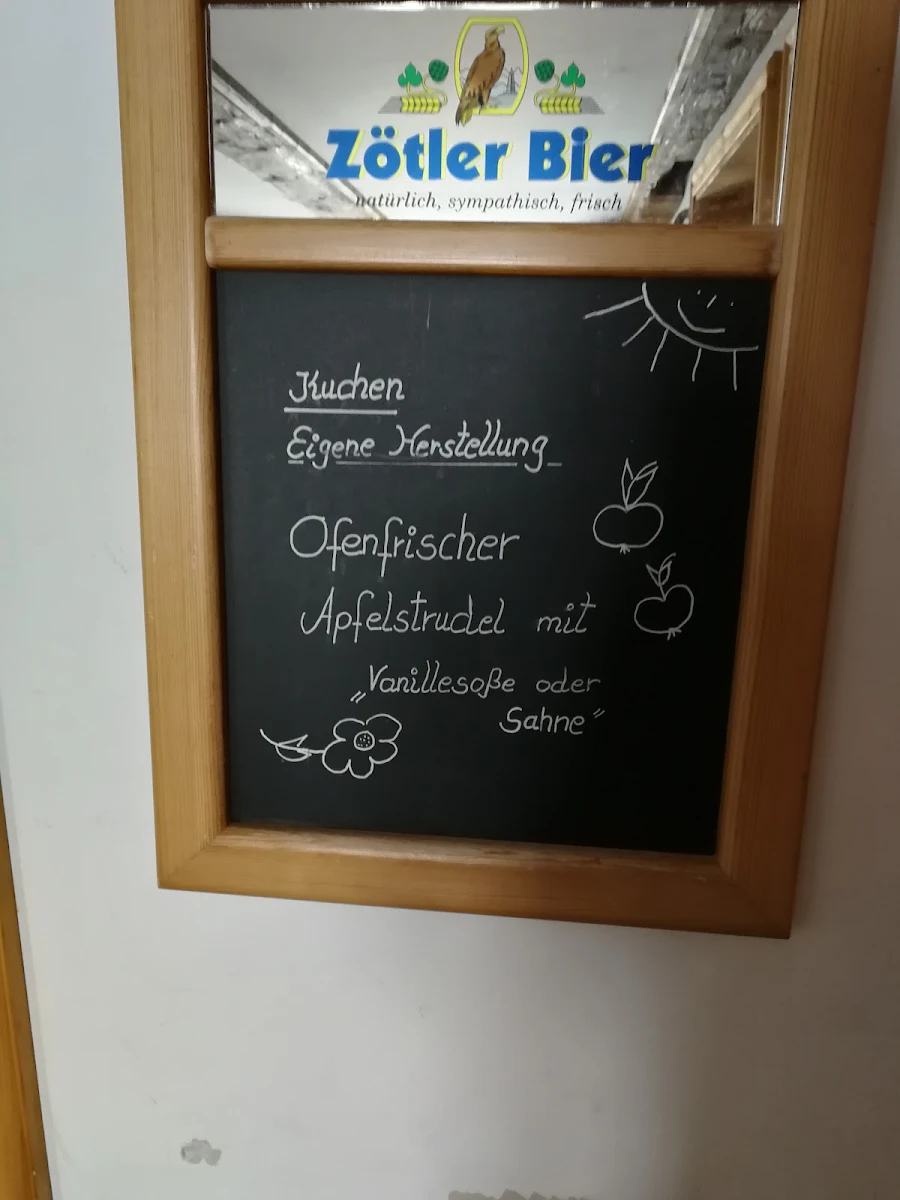 Zötler Bier
natürlich, sympathisch, frisch
Kuchen
Eigene Herstellung
Ofenfrischer
Apfelstrudel mit
„Vanillesoße oder
Sahne“